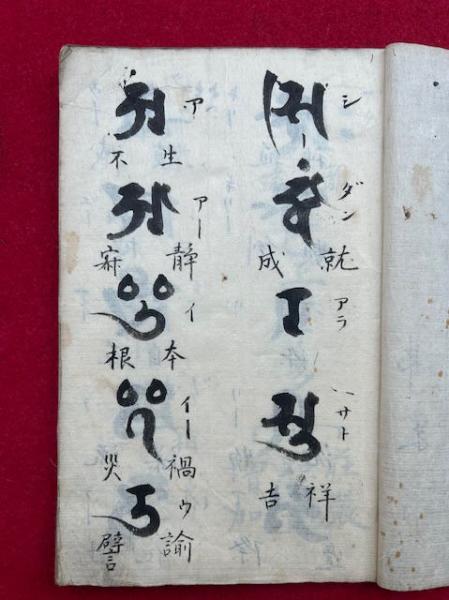 𑖭𑖰 シー
𑖟𑖿𑖠𑖽 ダン
成就
𑖨 アラ
𑖭𑖿𑖝𑖲 サト
吉祥
𑖀 ア
不生
𑖁 アー
寂静
𑖂 イ
根本
𑖃 イー
災禍
𑖄 ウ
譬諭